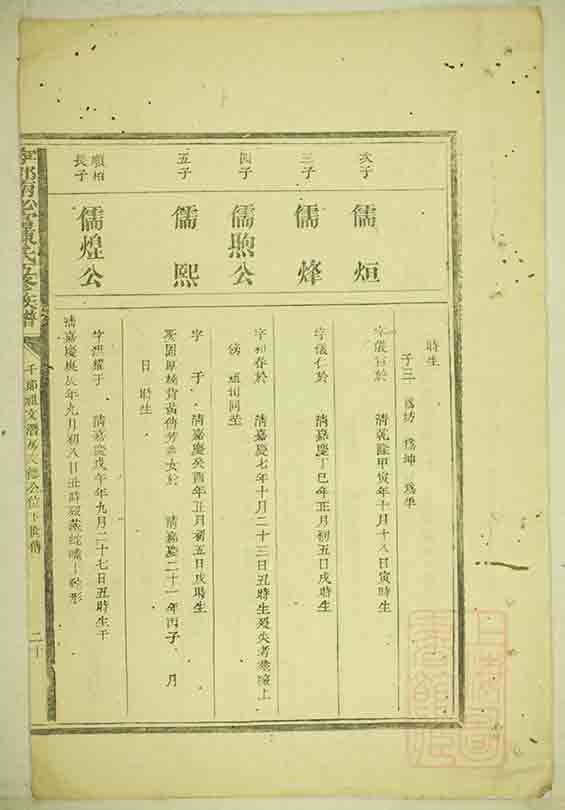 時生
子三 為坊 為坤 為華
次子
儒烜
字儀 於 清乾隆甲寅年十月十八日寅時生
三子
儒烽
字儀仁於 清嘉慶丁巳年正月初五日戌時生
四子
儒煦公
字 春於 清嘉慶七年十月二十三日丑時生歿失考葬 上
傍 祖 同塋
五子
儒熙
字 于 清嘉慶癸酉年正月初五日戌時生
娶固厚 背黃 女於 清嘉慶二十一年丙子 月
日 時生
順柏
長子
儒煌公
字洪耀于 清嘉慶戊午年九月二十七日丑時生于
清嘉慶庚辰年九月初八日丑時歿葬 形
陳氏五修族譜
千郎 文 房 德公位下世傳
二十